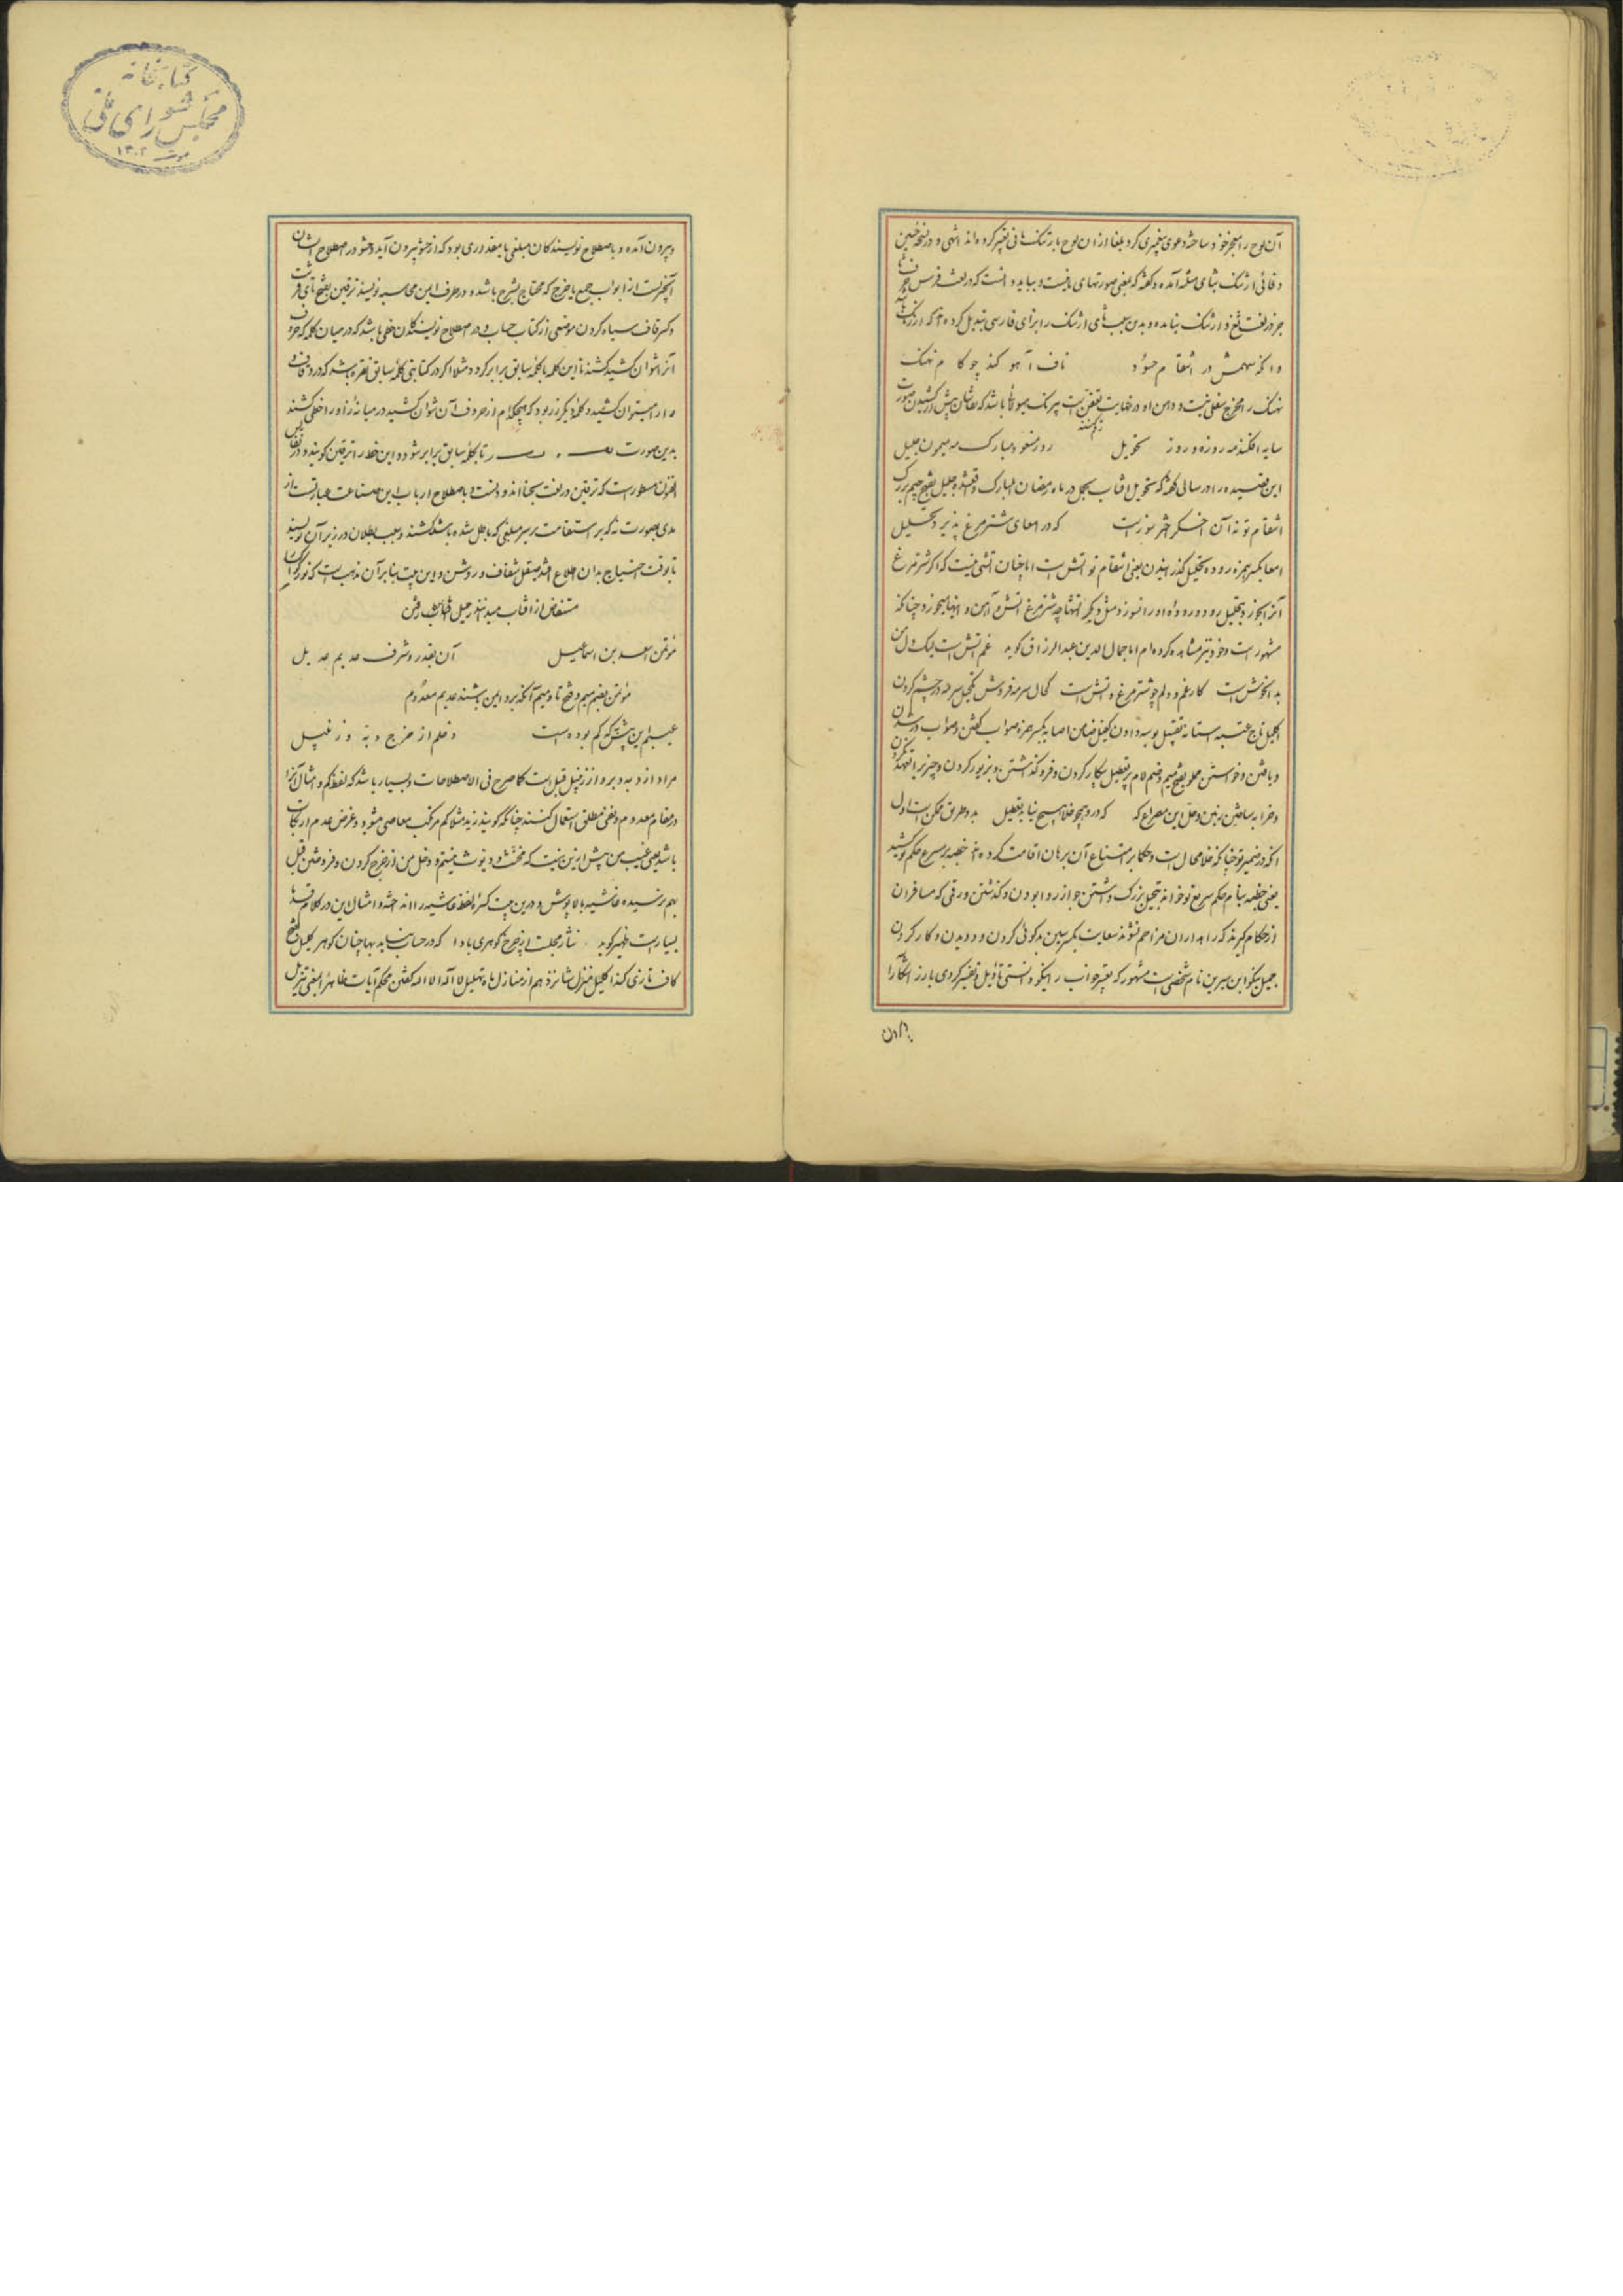 آن لوح را معجز خود ساخته دعوی پیغمبری کرد بلغا از ان لوح بارتنک مانی تعبیر کرده اند انتهی و در نسخه
وفائی ارثنک بثای مثلثه آمده و گفته که بمعنی صورتهای مانیست و بباید دانست که در لغت فرس
جز در لغت ثغ و ارثنک نیامده و بدین سبب ثای ارثنک را بزای فارسی تبدیل کرده اند که ارژنک
واکه سهمش در انتقام حسود ناف آهو کند چو کام نهنک
نهنک را مخرج سفلی نیست و دهن او در نهایت تعفن است نیرنک هیولا باشد که نقاشان پیش از کشیدن صورت
سایه افکند مه روزه و روز تحویل روز مسعود مبارک مه میمون جلیل
این قصیده را در سالی گفته که تحویل افتاب بحمل در ماه رمضان المبارک واقع شده جلیل بفتح جیم بزرک
انتقام تو نه آن اخگر اختر سوز است که در امعای شترمرغ پذیرد تحلیل
امعا بکسر همزه روده تحلیل گذرانیدن یعنی انتقام تو آتش است اما چنان آتشی نیست که اگر شترمرغ
آنرا بخورد بتحلیل رود و روده او را نسوزد مثل دیگر آتشها چه شترمرغ آتش و آهن و اینها میخورد چنانکه
مشهور است و خود نیز مشاهده کرده ام اما جمال الدین عبدالرزاق گوید غم آتش است لیک دل من
بدو خوش است کار غم و دلم چو شترمرغ و آتش است کحال سرمه فروش تکحیل سرمه در چشم کردن
اکلیل تاج عتبه استانه تقبیل بوسه دادن کفیل ضامن اصابه بکسر همزه صواب گفتن و صواب در شدن
و یافتن و خواستن مخلو بفتح میم و ضم لام پر تعطیل بیکار کردن و فرو گذاشتن و بی زیور کردن و چیزیرا تعهد نکردن
و خرابه ساختن زمین و حل این مصراع که که در او همچو خلا هیچ نیابد تعطیل بدو طریق ممکن است اول
انکه در ضمیر تو چنانکه خلا محال است و حکما بر امتناع آن برهان اقامت کرده اند خطبه بر سریع حکم تو کشید
یعنی خطبه بنام حکم سریع تو خواند تبجیل بزرک داشتن جواز روا بودن و گذشتن و رقی که مسافران
از حکام گیرند که راهداران مزاحم نشوند سعایت بکسر سین بدگوئی کردن و دویدن و کار کردن
جمیل نیکو ابن سیرین نام شخصی است مشهور که تعبیر خواب را نیکو دانستی تأویل و تفسیر کردی بارز آشکارا
و بیرون آمده و باصطلاح نویسندکان مبلغی یا مقداری بود که از حشو بیرون آید و حشو در اصطلاح ایشان
آنچیزیست از ابواب جمع یا خرج که محتاج بشرح باشد و در طرف ایمن محاسبه نویسند ترقین بفتح تای قرشت
و کسر قاف سیاه کردن موضعی از کتاب حساب و در اصطلاح نویسندکان خطی باشد که در میان کلمه که حروف
آنرا نتوان کشید کشند تا این کلمه با کلمه سابق برابر گردد مثلا اگر در کتابتی کلمه سابق نقره باشد که در او قاف و
را را میتوان کشید و کلمه دیگر زر بود که هیچکدام از حروف آن نتوان کشید در میانه زا و را خطی کشند
بدین صورت ز ر تا بکلمه سابق برابر شود و این خط را ترقین گویند و در نفایس
الفنون مسطور است که ترقین در لغت سحا اندودنست و باصطلاح ارباب این صناعت عبارتست از
مدی بصورت نه که بر استقامت بر سر مبلغی که باطل شده باشد کشند و سبب بطلان در زیر آن نویسند
تا بوقت احتیاج بدان اطلاع افتد صیقل شفاف و روشن و این بیت بنابر آن مذهب است که نور کواکب
مستفاض از افتاب میدانند رحیل شتاب رفتن
مؤتمن اسعد بن اسماعیل آن بقدر و شرف عدیم عدیل
مؤتمن بضم میم و فتح تا و میم آنکه برو ایمن باشند عدیم معدوم
عیبم این پیش که کم بوده است دخلم از خرج دبه و زنبیل
مراد از دبه دبر و از زنبیل قبل است کما صرح فی الاصطلاحات و بسیار باشد که لفظ کم و امثال آنرا
در مقام معدوم و نفی مطلق استعمال کنند چنانکه گویند زید مثلا کم مرتکب معاصی میشود و غرض عدم ارتکاب
باشد یعنی عیب من پیش از این نیست که مخنث و دیوث نیستم و دخل من از خرج کردن و فروختن قبل
بهم نرسیده غاشیه بالاپوش و درین بیت کسره لفظ غاشیه را انداخته و امثال این در کلام قدما
بسیار است ظهیر گوید نثار مجلست از چرخ گوهری بادا که در حساب نیاید بها چنان گوهر کلیل بفتح
کاف تازی کند اکلیل منزل شانزدهم از منازل ماه تهلیل لا اله الا الله گفتن محکم آیات ظاهر المعنی تنزیل